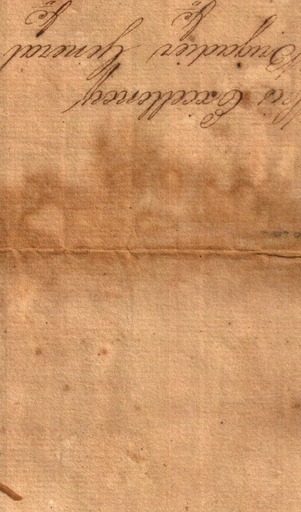 His Excellency
Brigadier General
&c &c